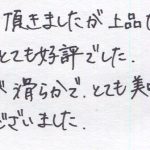 頂きましたが上品
とても好評でした.
滑らかで、とても美
ございました.